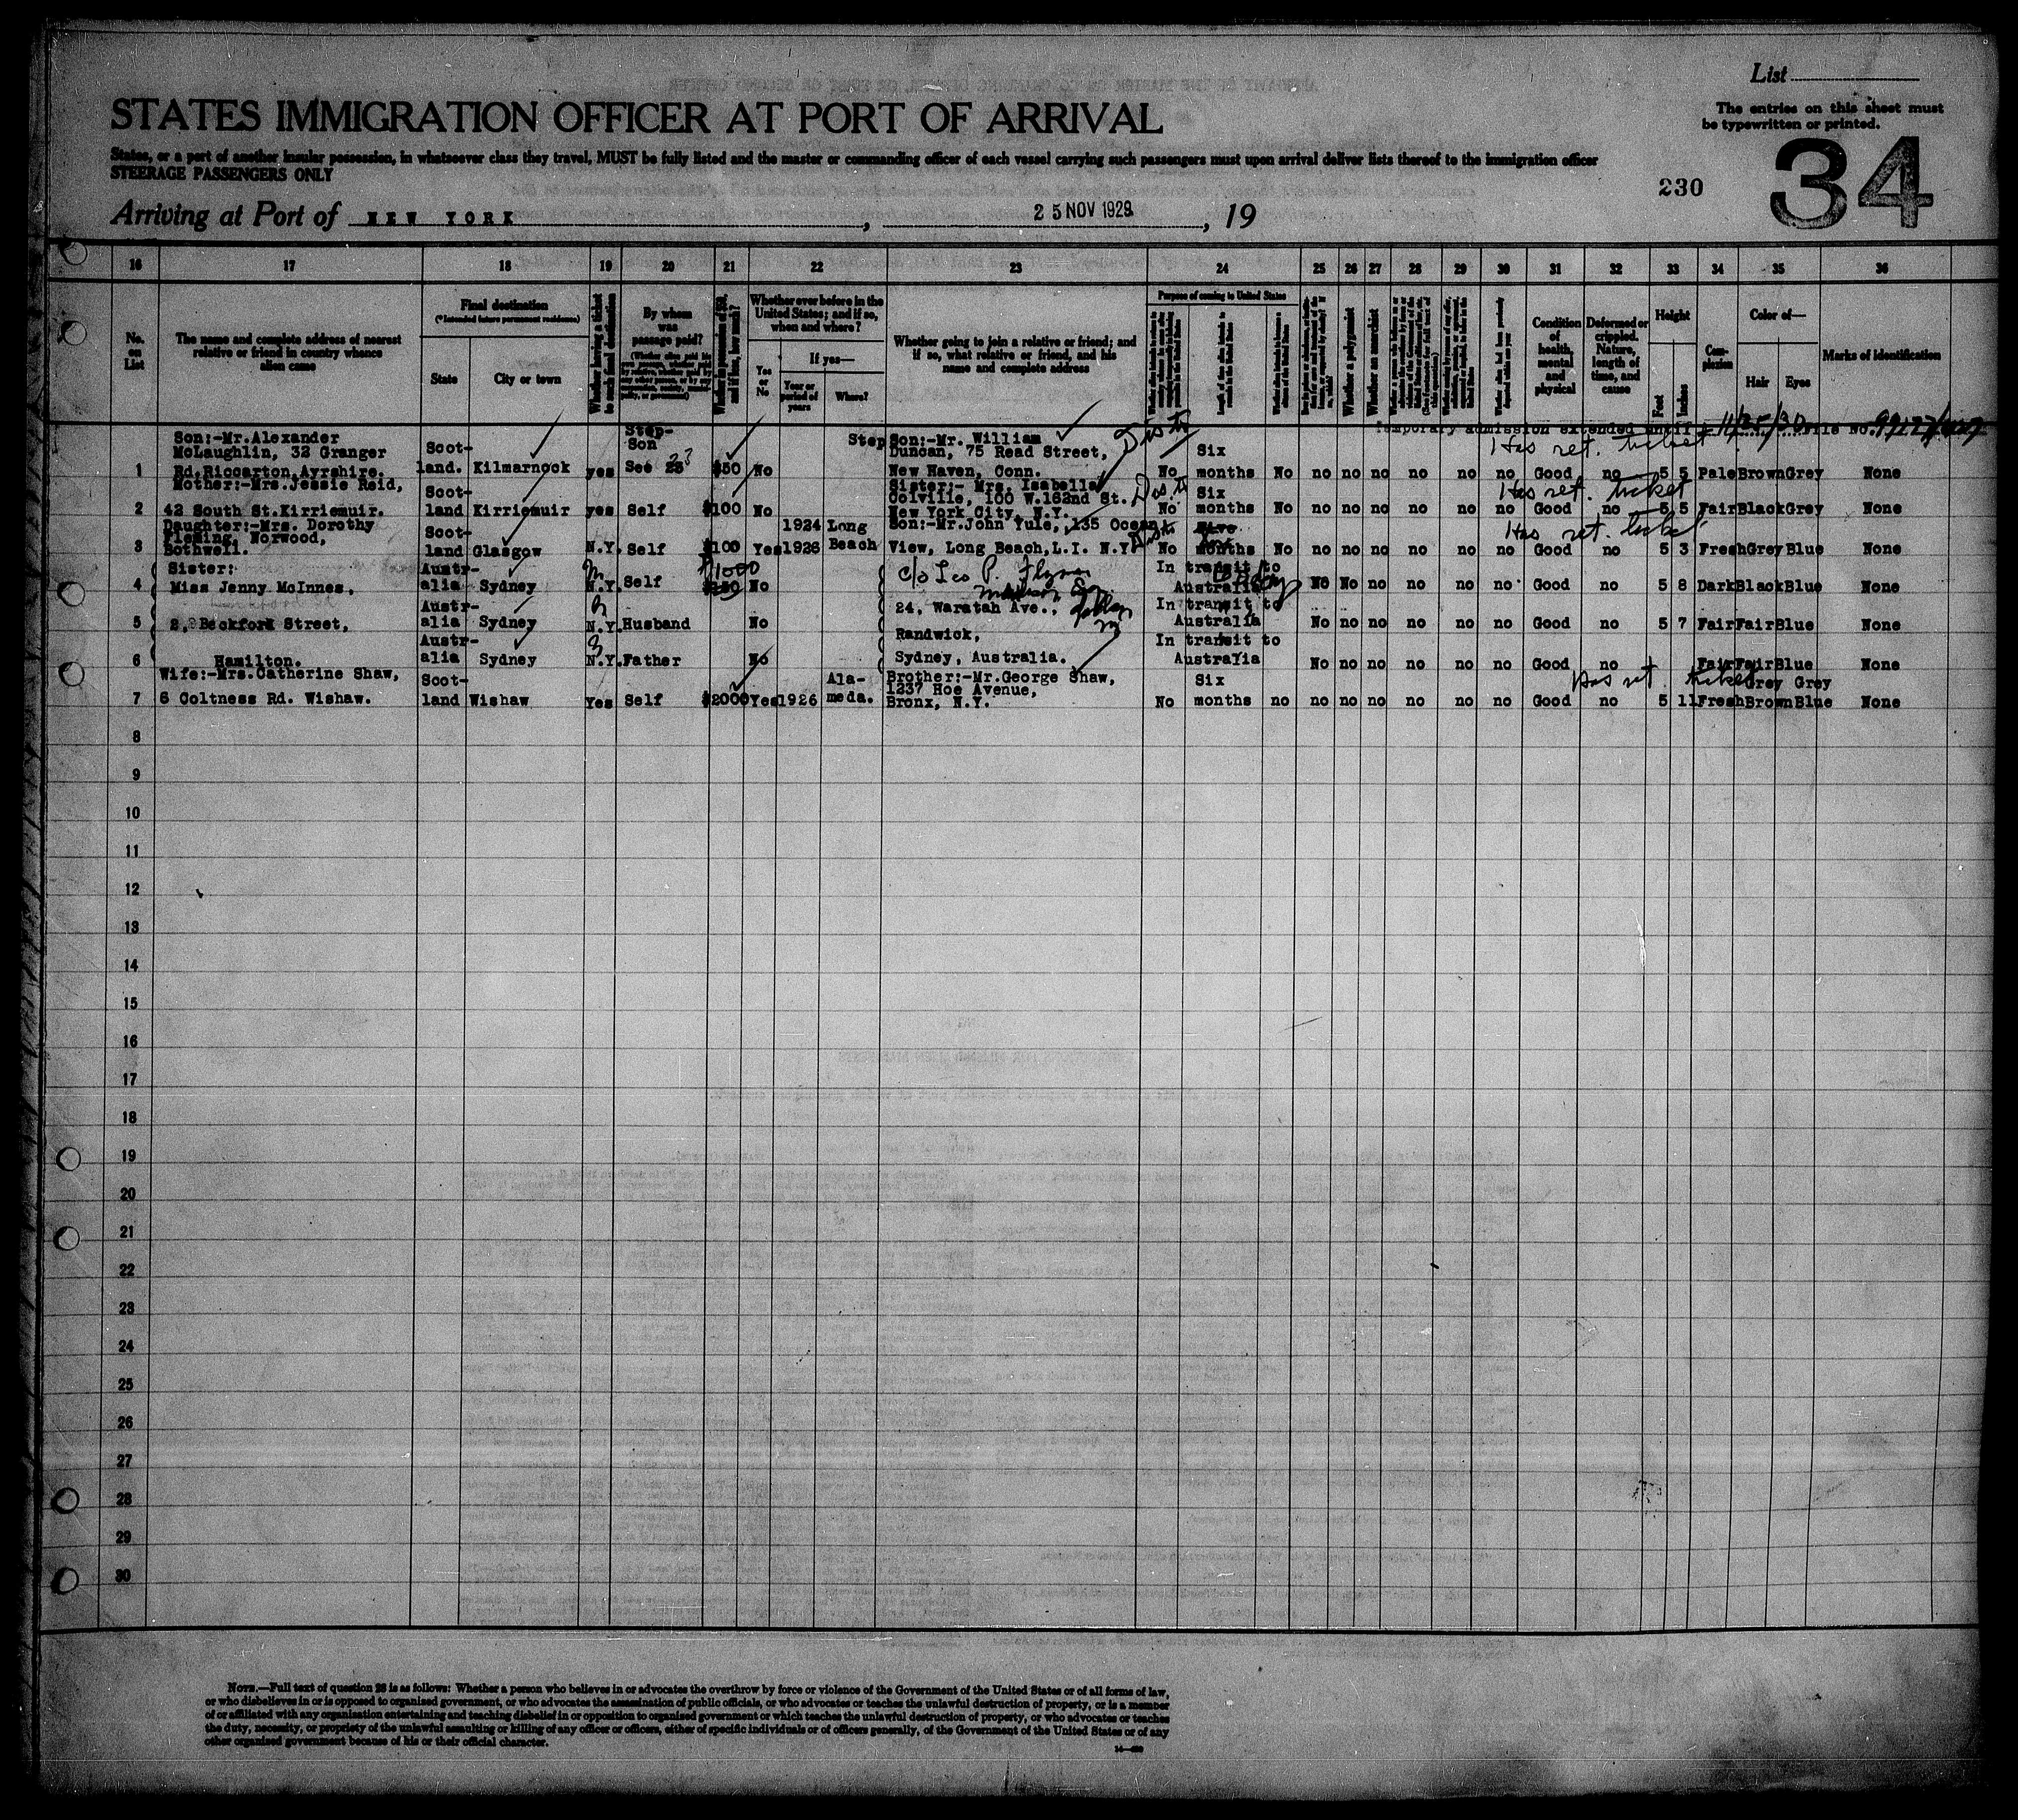 List
The entries on this sheet must
be typewritten or printed.
STATES IMMIGRATION OFFICER AT PORT OF ARRIVAL
34
States, or a port of another insular possession, in whatsoever class they travel, MUST be fully listed and the master or commanding officer of each vessel carrying such passengers must upon arrival deliver lists thereof to the immigration officer
STEERAGE PASSENGERS ONLY
230
Arriving at Port of NEW YORK , 25 NOV 1929 , 19
16 17 18 19 20 21 22 23 24 25 26 27 28 29 30 31 32 33 34 35 36
No. on List
The name and complete address of nearest relative or friend in country whence alien came
Final destination
(*Intended future permanent residence)
State City or town
Whether having a ticket to such final destination
By whom was passage paid?
Whether ever before in the United States; and if so, when and where?
Yes or No
If yes—
Year or period of years
Where?
Whether going to join a relative or friend; and if so, what relative or friend, and his name and complete address
Purpose of coming to United States
Whether a polygamist
Whether an anarchist
Condition of health, mental and physical
Deformed or crippled. Nature, length of time, and cause
Height
Feet Inches
Complexion
Color of—
Hair Eyes
Marks of identification
Temporary admission extended until 11/25/30 File No.
Has ret. ticket
1 Son:-Mr.Alexander McLaughlin, 32 Granger Rd.Riccarton,Ayrshire. Scotland. Kilmarnock yes Step-Son See 23 $50 No Step Son:-Mr. William Duncan, 75 Read Street, New Haven, Conn. No Six months No no no no no no no Good no 5 5 Pale Brown Grey None
Has ret. ticket
2 Mother:-Mrs.Jessie Reid, 42 South St.Kirriemuir. Scotland Kirriemuir yes Self $100 No Sister:- Mrs. Isabella Colville, 100 W.162nd St. New York City, N.Y. No Six months No no no no no no no Good no 5 5 Fair Black Grey None
Has ret. ticket
3 Daughter:-Mrs. Dorothy Fleming, Norwood, Bothwell. Scotland Glasgow N.Y. Self $100 Yes 1924 1926 Long Beach Son:-Mr.John Yule, 135 Ocean View, Long Beach,L.I. N.Y. No Five months No no no no no no no Good no 5 3 Fresh Grey Blue None
4 Sister: Miss Jenny McInnes, Australia Sydney N.Y. Self $1000 $250 No c/o Leo P. Flynn In transit to Australia No No no no no no Good no 5 8 Dark Black Blue None
5 2, Beckford Street, Australia Sydney N.Y. Husband No 24, Waratah Ave., In transit to Australia No no no no no no Good no 5 7 Fair Fair Blue None
6 Hamilton. Australia Sydney N.Y. Father No Randwick, Sydney, Australia. In transit to Australia No no no no no no Good no Fair Fair Blue None
Has ret ticket
7 Wife:-Mrs.Catherine Shaw, 6 Coltness Rd. Wishaw. Scotland Wishaw Yes Self $2000 Yes 1926 Alameda. Brother:-Mr.George Shaw, 1237 Hoe Avenue, Bronx, N.Y. No Six months no no no no no no no Good no 5 11 Fresh Grey Brown Grey Blue None
8
9
10
11
12
13
14
15
16
17
18
19
20
21
22
23
24
25
26
27
28
29
30
NOTE.—Full text of question 28 is as follows: Whether a person who believes in or advocates the overthrow by force or violence of the Government of the United States or of all forms of law,
or who disbelieves in or is opposed to organized government, or who advocates the assassination of public officials, or who advocates or teaches the unlawful destruction of property, or is a member
of or affiliated with any organization entertaining and teaching disbelief in or opposition to organized government or which teaches the unlawful destruction of property, or who advocates or teaches
the duty, necessity, or propriety of the unlawful assaulting or killing of any officer or officers, either of specific individuals or of officers generally, of the Government of the United States or of any
other organized government because of his or their official character.